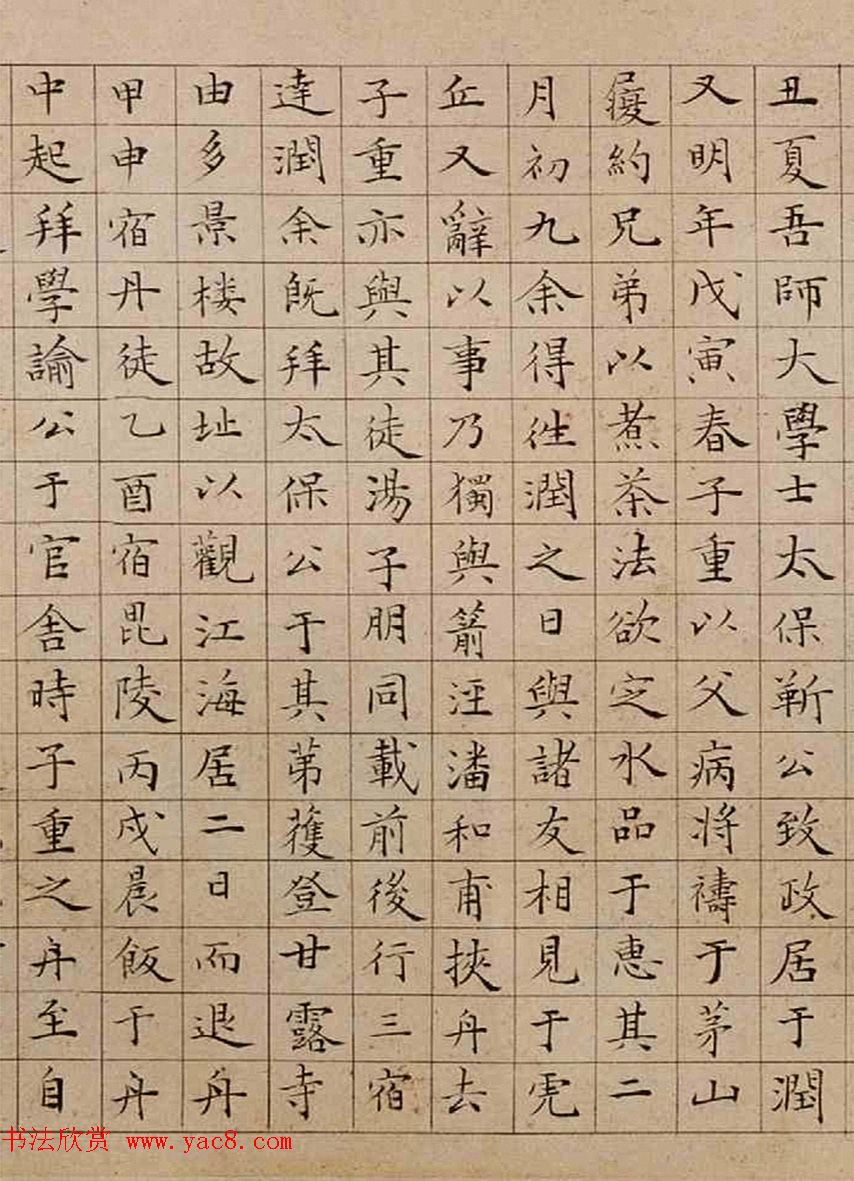 丑夏吾師大學士太保靳公致政居于潤
又明年戊寅春子重以父病將禱于茅山
履約兄弟以煮茶法欲定水品于惠其二
月初九余得往潤之日與諸友相見于虎
丘又辭以事乃獨與箭涇潘和甫挾舟去
子重亦與其徒湯子朋同載前後行三宿
達潤余既拜太保公于其第獲登甘露寺
由多景楼故址以觀江海居二日而退舟
甲申宿丹徒乙酉宿毘陵丙戌晨飯于舟
中起拜學諭公于官舎時子重之舟至自
书法欣赏 www.yac8.com